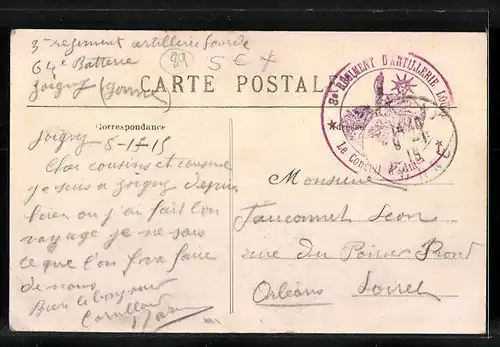 3e regiment artillerie lourde
64e Batterie
Joigny (Yonne)
(89)
5 € +
CARTE POSTALE
3e RÉGIMENT D'ARTILLERIE LOURDE
Le Conseil d'Admon
Correspondance
Adresse
Joigny 5-1-15
Cher cousins et cousine
je suis a Joigny depuis
hier ou j'ai fait bon
voyage je ne sais
ce que l'on fera faire
de nous
Bien le bonjour
Monsieur
Fauconnet Leon
rue du Poirier Rond
Orléans Loiret